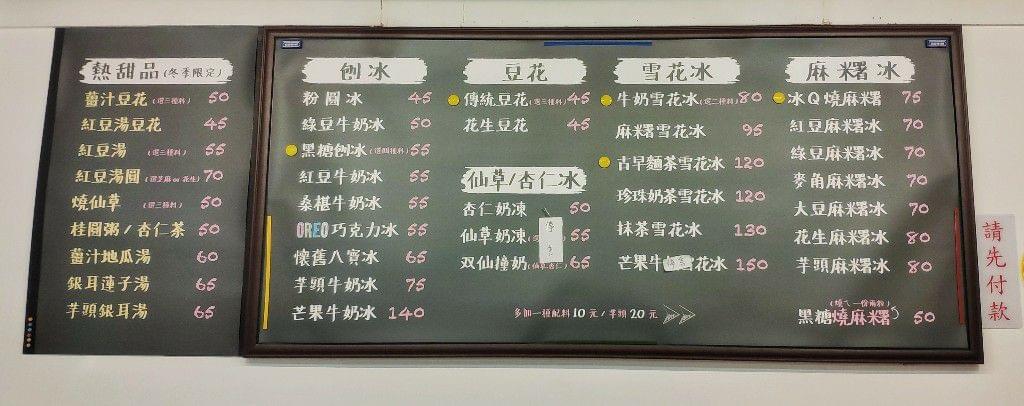 熱甜品(冬季限定)
薑汁豆花(選三種料) 50
紅豆湯豆花 45
紅豆湯 (選三種料) 55
紅豆湯圓(選芝麻or花生) 70
燒仙草 (選三種料) 50
桂圓粥/杏仁茶 50
薑汁地瓜湯 60
銀耳蓮子湯 65
芋頭銀耳湯 65
刨冰
粉圓冰 45
綠豆牛奶冰 50
黑糖刨冰(選四種料) 55
紅豆牛奶冰 55
桑椹牛奶冰 55
OREO巧克力冰 55
懷舊八寶冰 65
芋頭牛奶冰 75
芒果牛奶冰 140
豆花
傳統豆花(選三種料) 45
花生豆花 45
仙草/杏仁冰
杏仁奶凍 50
仙草奶凍 55
双仙撞奶(仙草.杏仁) 65
雪花冰
牛奶雪花冰(選二種料) 80
麻糬雪花冰 95
古早麵茶雪花冰 120
珍珠奶茶雪花冰 120
抹茶雪花冰 130
芒果牛花冰 150
多加一種配料10元/芋頭20元
麻糬冰
冰Q燒麻糬 75
紅豆麻糬冰 70
綠豆麻糬冰 70
麥角麻糬冰 70
大豆麻糬冰 70
花生麻糬冰 80
芋頭麻糬冰 80
黑糖燒麻糬 50
請先付款